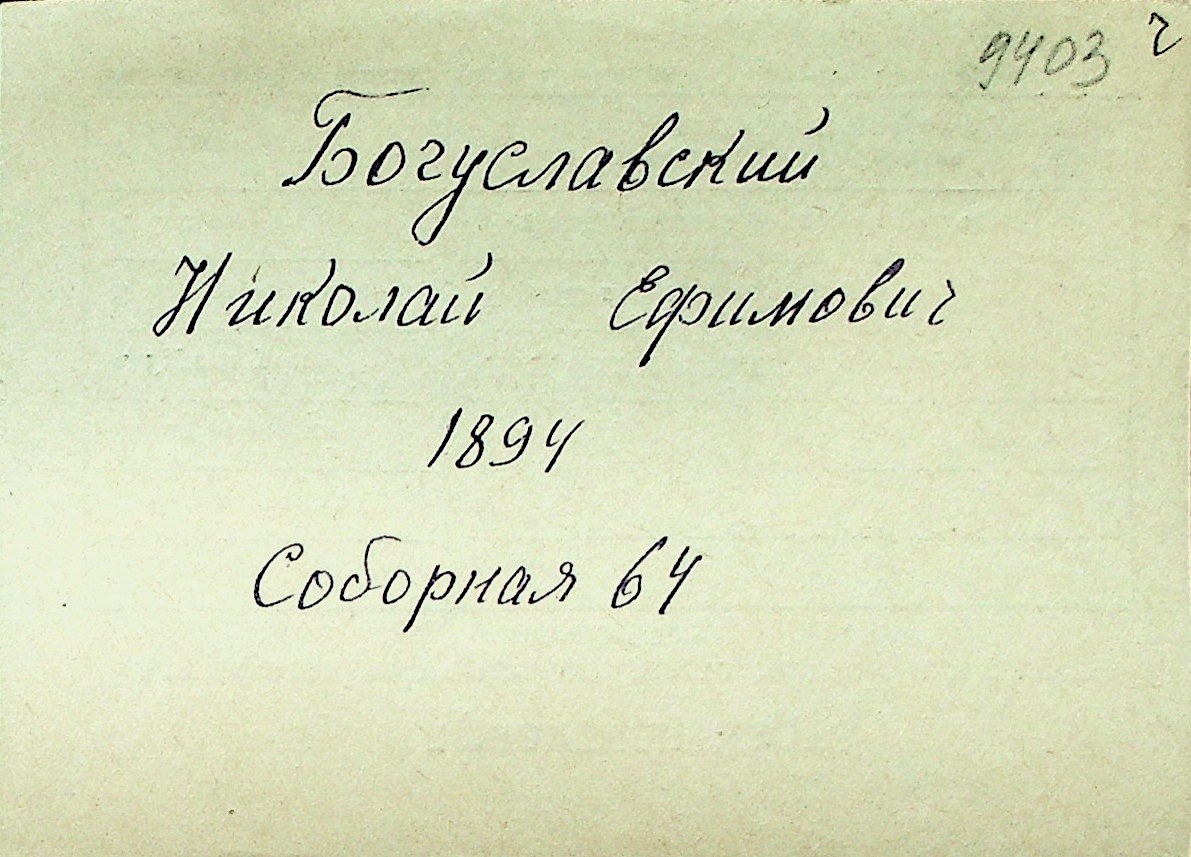 9403 г
Богуславский
Николай Ефимович
1894
Соборная 64